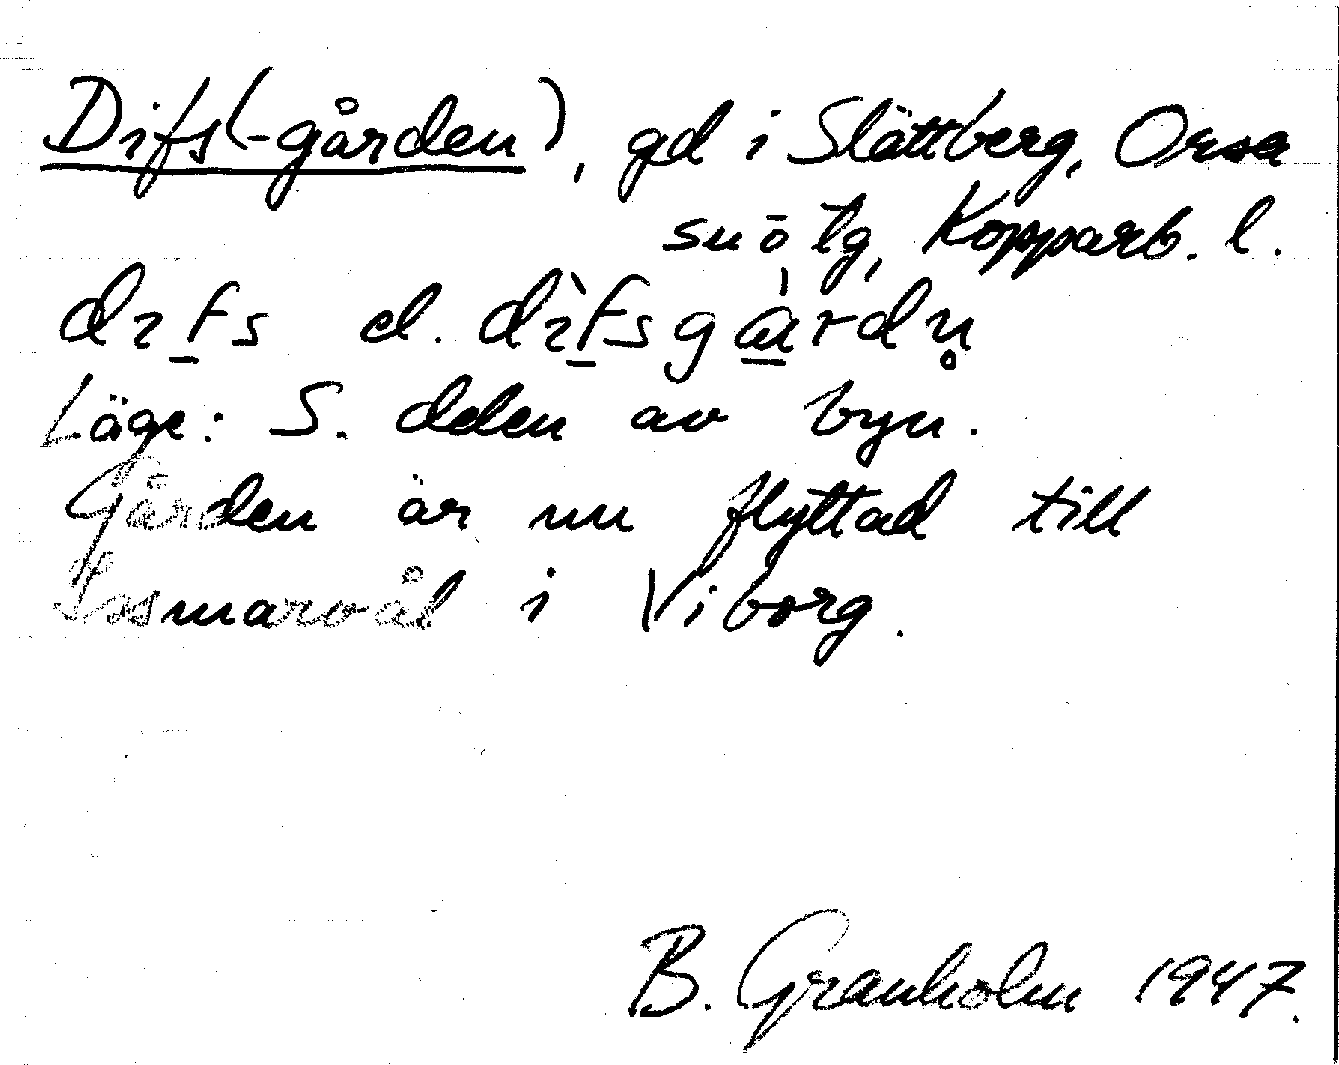 Difs(-gården), gd i Slättberg, Orsa
sn ö tg, Kopparb. l.
dɪfs el. dɪ̀fsgàrdn̥
Läge: S. delen av byn.
Gården är nu flyttad till
i Viborg.
B. Granholm 1947.